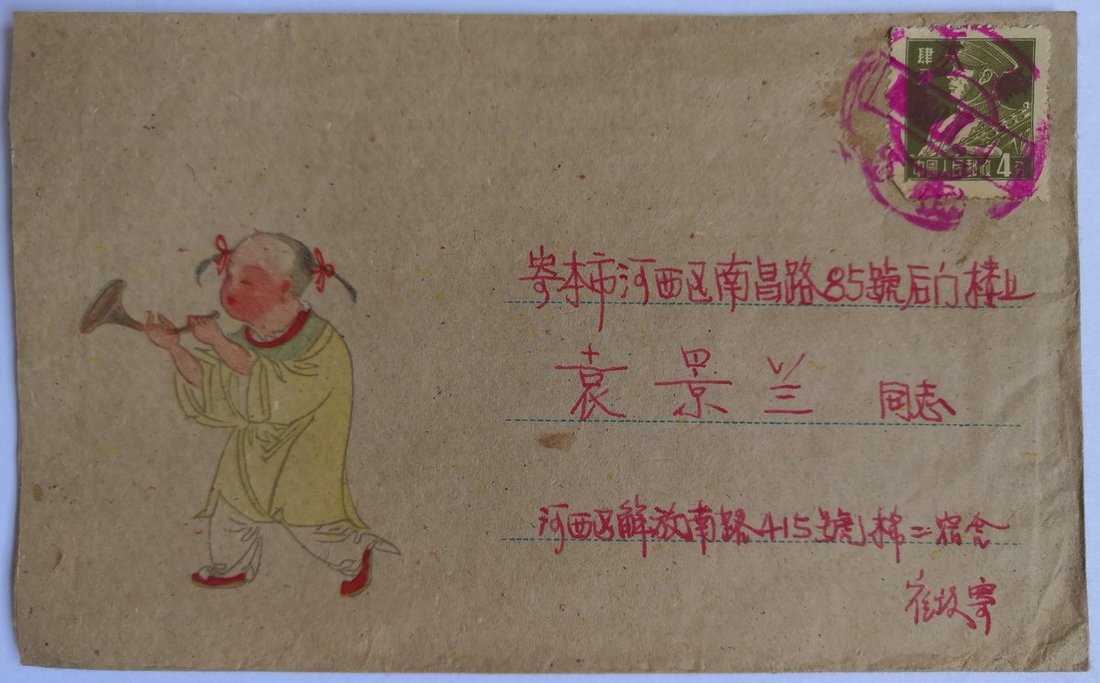 肆
中國人民郵政 4分
寄本市河西区南昌路85號后门楼上
袁景兰 同志
河西区解放南路415號 棉二宿舍
崔 寄